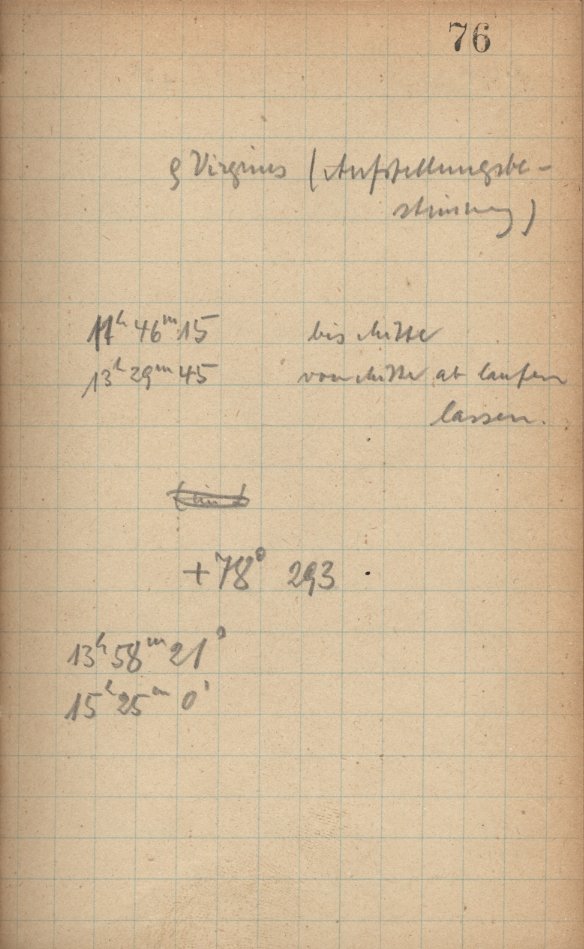 76
ϱ Virginis (Aufstellungsbe-
stimmung)
11ʰ 46ᵐ 15 bis Mitte
13ʰ 29ᵐ 45 von Mitte ab laufen
lassen.
+78° 293
13ʰ 58ᵐ 21ˢ
15ʰ 25ᵐ 0ˢ